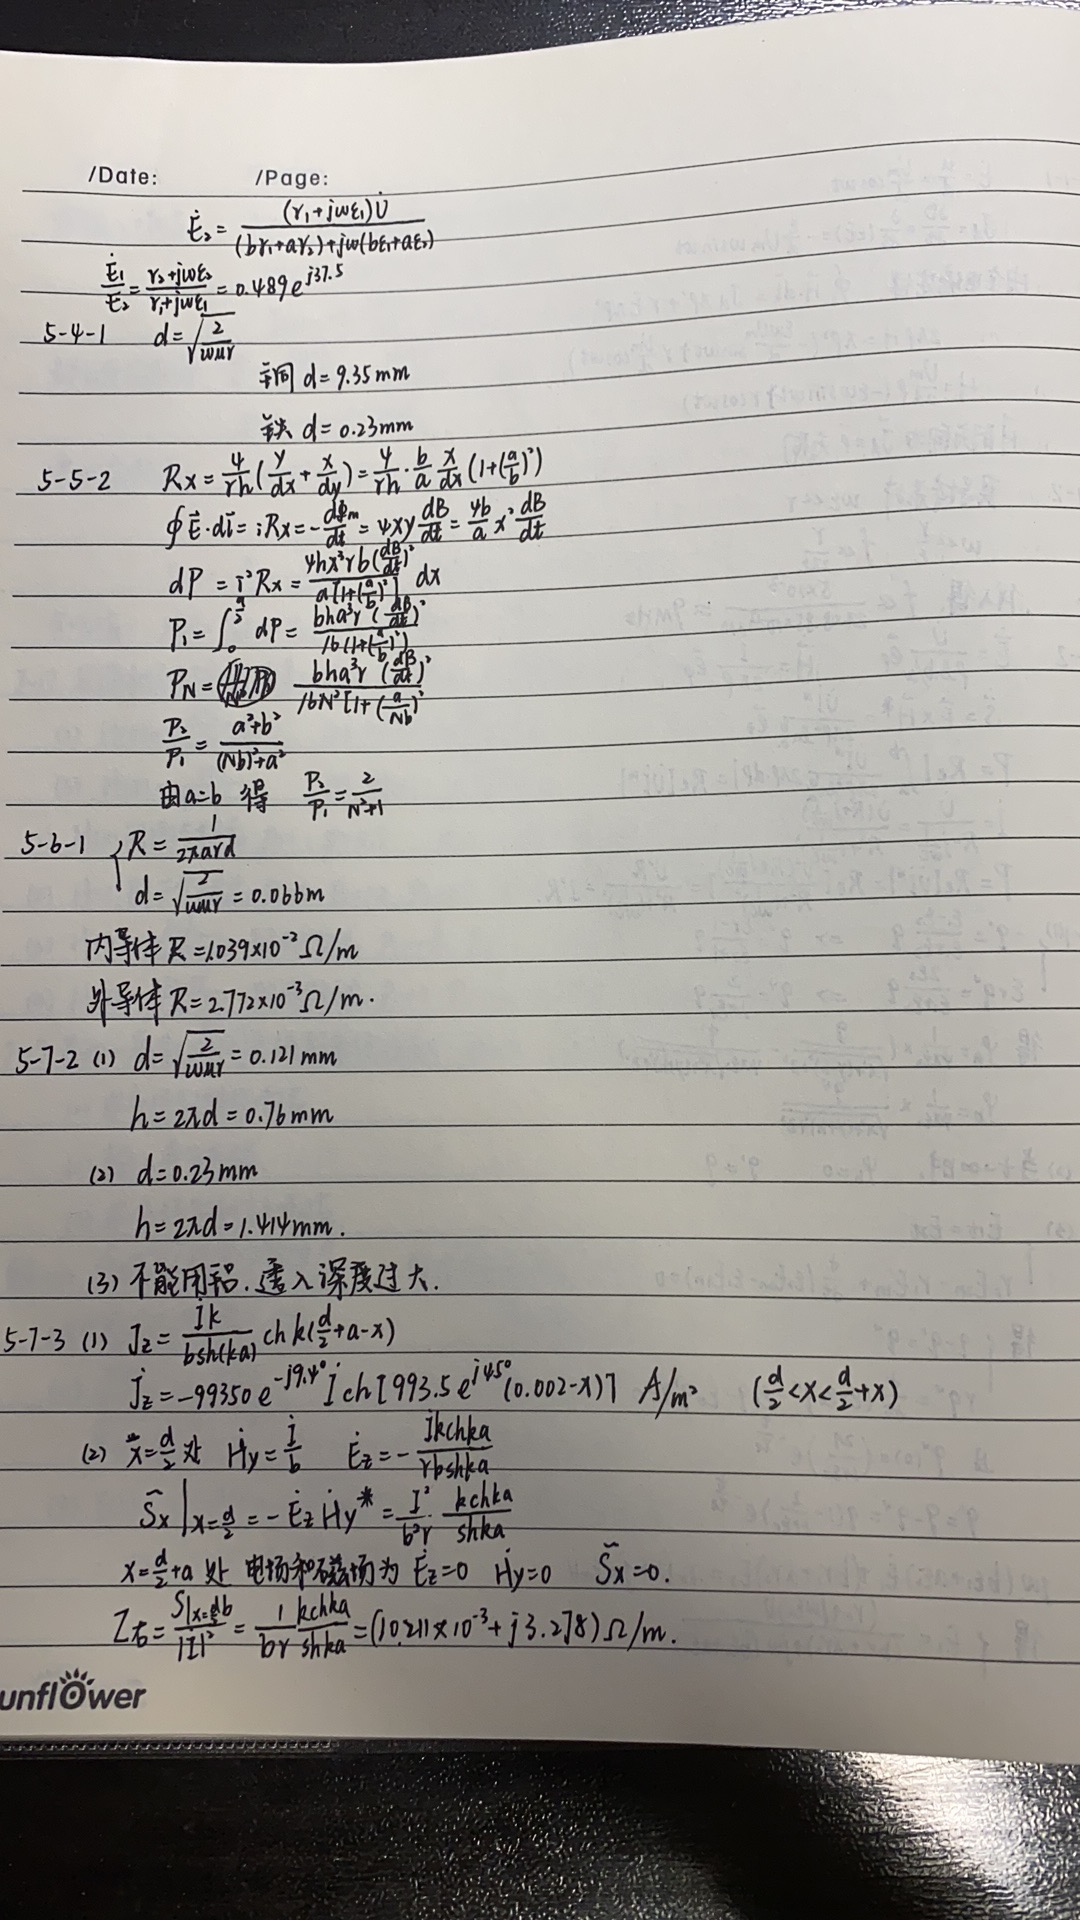 /Date: /Page:
Ė₂ = (γ₁+jωε₁)U̇ / ((bγ₁+aγ₂)+jω(bε₁+aε₂))
Ė₁/Ė₂ = (γ₂+jωε₂)/(γ₁+jωε₁) = 0.489e^{j37.5}
5-4-1 d=√(2/ωμγ)
铜 d=9.35mm
铁 d=0.23mm
5-5-2 Rx = 4/(γh) (y/dx + x/dy) = 4/(γh)·b/a x/dx (1+(a/b)²)
∮E⃗·dl⃗ = iRx = -dΦm/dt = 4xy dB/dt = 4b/a x² dB/dt
dP = i²Rx = 4hx³γb(dB/dt)² / a[1+(a/b)²] dx
P₁ = ∫₀^{a/2} dP = bha³γ(dB/dt)² / 16(1+(a/b)²)
P_N = bha³γ(dB/dt)² / 16N²[1+(a/Nb)²
P₂/P₁ = (a²+b²)/((Nb)²+a²)
由a=b 得 P₂/P₁ = 2/(N²+1)
5-6-1 { R = 1/(2πaγd)
d=√(2/ωμγ) = 0.066m
内导体 R=1.039×10⁻² Ω/m
外导体 R=2.772×10⁻³ Ω/m.
5-7-2 (1) d=√(2/ωμγ) = 0.121mm
h=2πd=0.76mm
(2) d=0.23mm
h=2πd=1.414mm.
(3) 不能用铝.透入深度过大.
5-7-3 (1) J̇z = İk/(bsh(ka)) ch k(d/2+a-x)
J̇z = -99350e^{-j9.4°} İ ch[993.5e^{j45°}(0.002-x)] A/m² (d/2<x<d/2+x)
(2) x=d/2 处 Ḣy=İ/b Ėz=-İkchka/(γbshka)
S̃x|x=d/2 = -ĖzḢy* = I²/(b²γ)·kchka/shka
x=d/2+a 处 电场和磁场为 Ėz=0 Ḣy=0 S̃x=0.
Z右 = S|x=d/2 b/|I|² = 1/(bγ) kchka/shka = (10.211×10⁻³+j3.278)Ω/m.
unflower